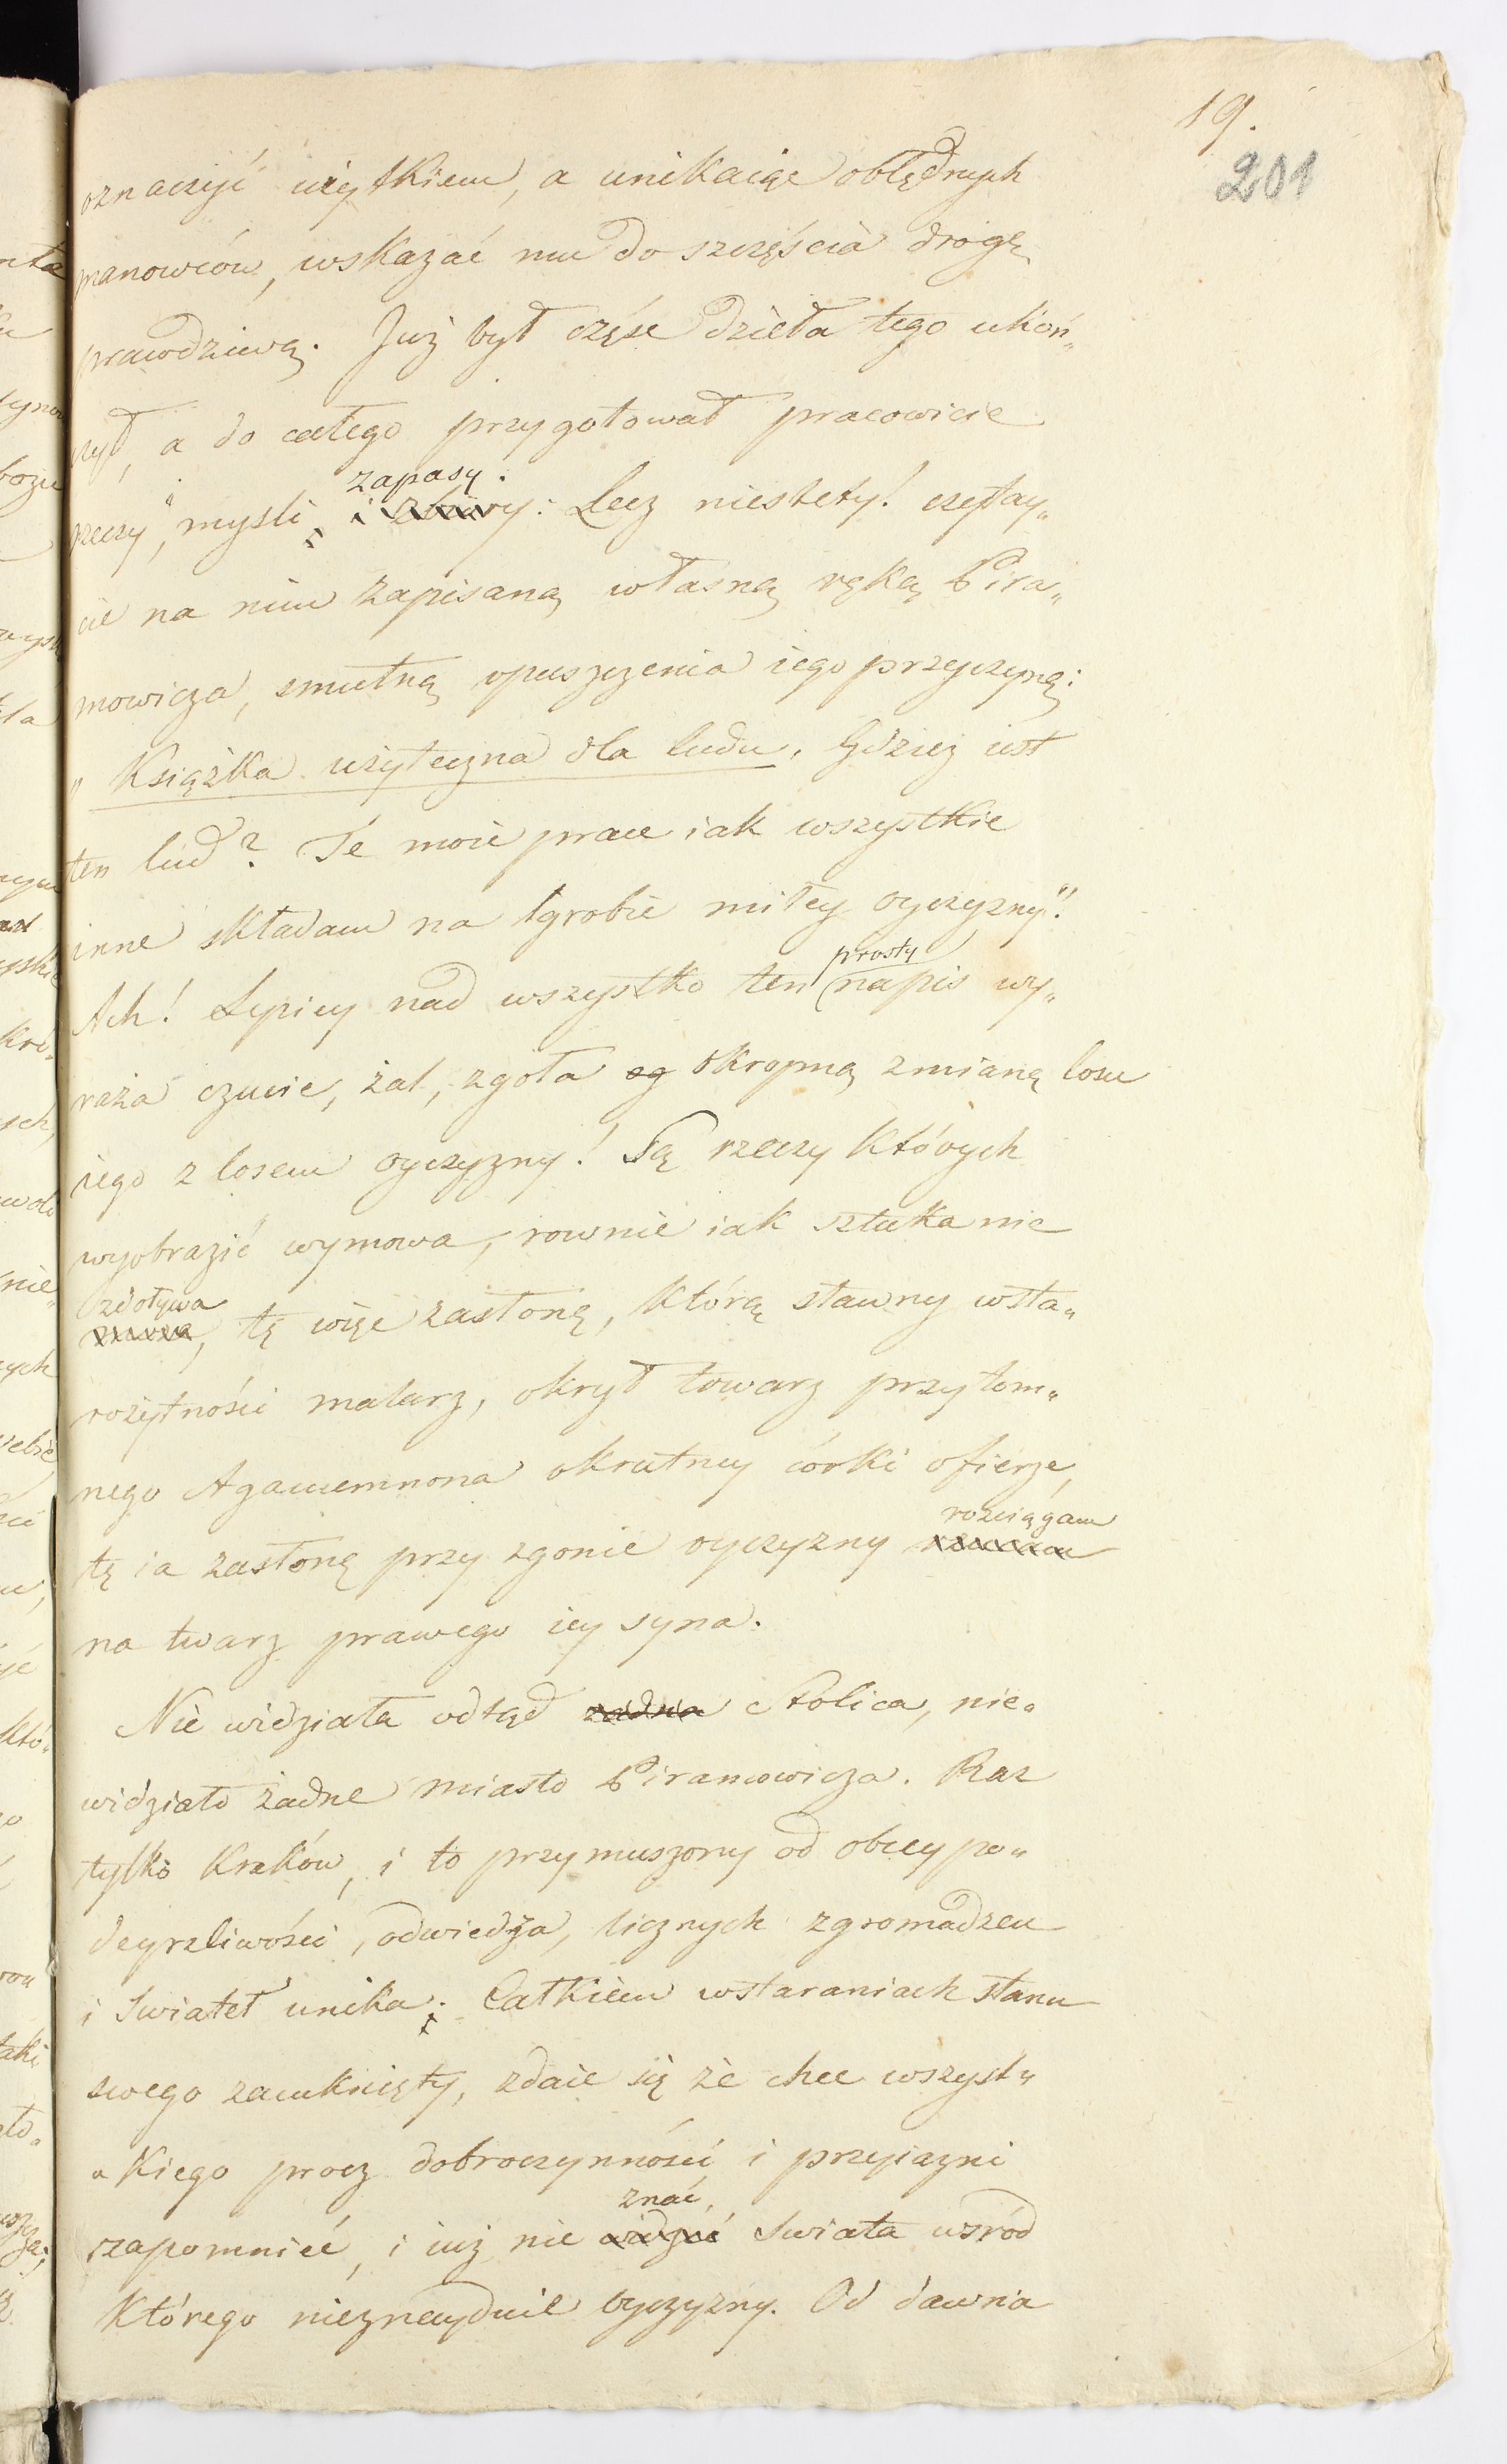 19.
201
oznaczyć użytkiem, a unikaiąc obłędnych
manowców, wskazać mu do szczęścia drogę
prawdziwą. Już był część dzieła tego ukoń„
czył, a do całego przygotował pracowicie
zapasy.
rzeczy, myśli i zbiory: Lecz niestety! czytay„
cie na nim zapisaną własną ręką Pira„
mowicza, smutną opuszczenia iego przyczynę:
„Książka użyteczna dla ludu. Gdzież iest
ten lud? Te moie prace iak wszystkie
inne składam na grobie miłey oyczyzny".
prosty
Ach! Lepiey nad wszystko ten napis wy„
raża czucie, żal, zgoła og okropną zmianę losu
iego z losem oyczyzny! Są rzeczy których
wyobrazić wymowa, rownie iak sztuka nie
zdoływa
, tę więc zasłonę, którą sławny wsta„
rożytności malarz, okrył towarz przytom„
nego Agamemnona okrutney córki ofierze,
rozciągam
tę ia zasłonę przy zgonie oyczyzny
na twarz prawego iey syna.
Nie widziała odtąd żadna Stolica, nie„
widziało żadne miasto Piramowicza. Raz
tylko Kraków, i to przymuszony od obcey po„
deyrzliwości, odwiedza, licznych zgromadzeń
i Świateł unika; Całkiem wstaraniach stanu
swego zamknięty, zdaie się że chce wszyst„
„kiego procz dobroczynności i przyiazni
znać,
zapomnieć, i iuż nie widzieć Świata wśród
którego nieznayduie oyczyzny. Od dawna